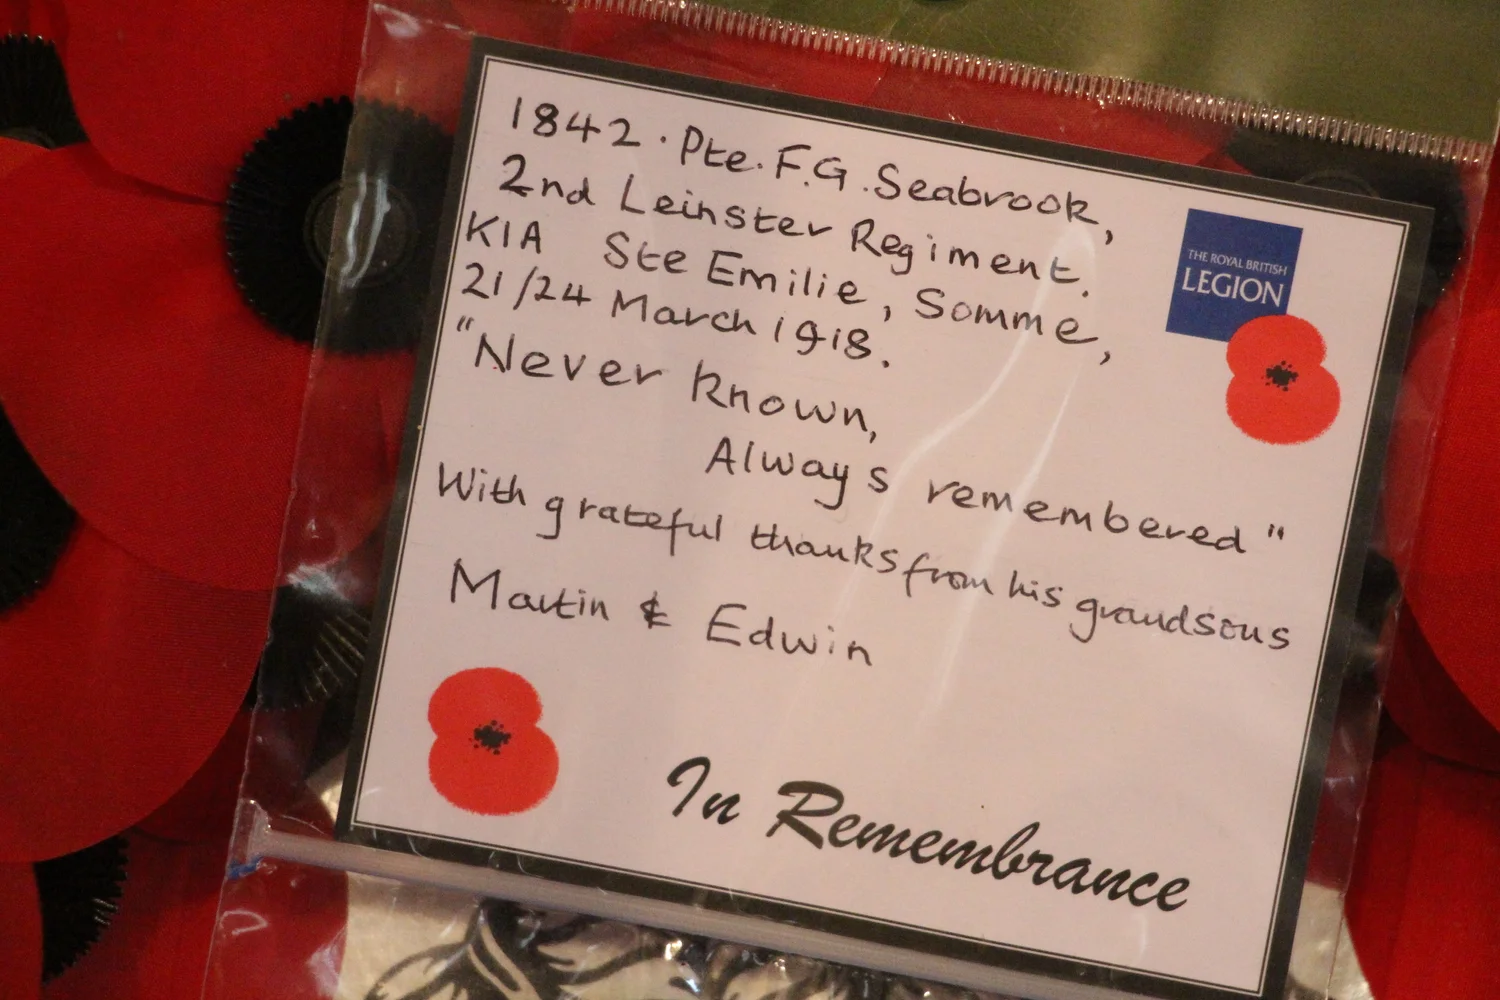 1842. Pte. F.G. Seabrook,
2nd Leinster Regiment.
KIA Ste Emilie, Somme,
21/24 March 1918.
"Never known,
Always remembered"
With grateful thanks from his grandsons
Martin & Edwin
THE ROYAL BRITISH
LEGION
In Remembrance